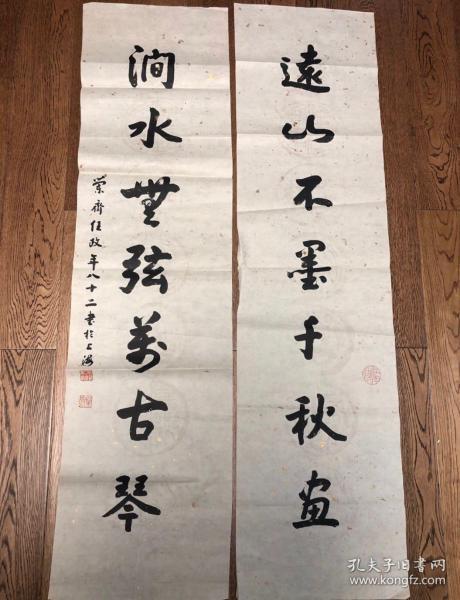 遠山不墨千秋画
澗水無弦萬古琴
蘭齋任政年八十二書於上海
孔夫子旧书网
www.kongfz.com